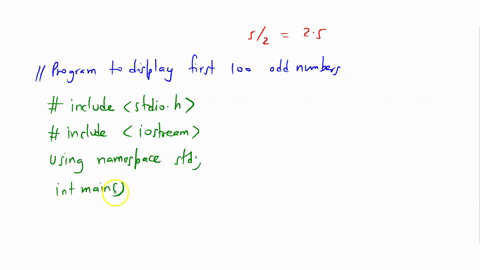 5/2 = 2.5
// Program to display first 100 odd numbers
# include <stdio.h>
# include <iostream>
using namespace std;
int main()